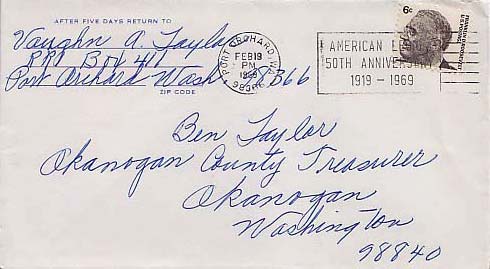 AFTER FIVE DAYS RETURN TO
Vaughn A. Taylor
RR1 Box 411
Port Orchard Wash
ZIP CODE
PORT ORCHARD, WA
FEB 13
PM
1969
98366
AMERICAN
50TH ANNIVERSARY
1919 – 1969
6c
Ben Taylor
Okanogan County Treasurer
Okanogan
Washington
98840